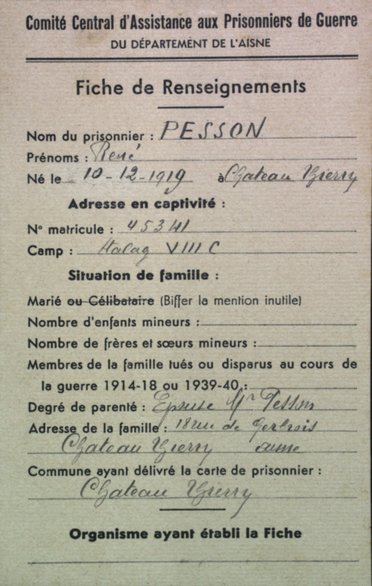 Comité Central d'Assistance aux Prisonniers de Guerre
DU DÉPARTEMENT DE L'AISNE
Fiche de Renseignements
Nom du prisonnier : PESSON
Prénoms : René
Né le 10-12-1919 à Chateau Thierry
Adresse en captivité :
N° matricule : 45341
Camp : Stalag VIII C
Situation de famille :
Marié ou Célibataire (Biffer la mention inutile)
Nombre d'enfants mineurs :
Nombre de frères et sœurs mineurs :
Membres de la famille tués ou disparus au cours de
la guerre 1914-18 ou 1939-40 :
Degré de parenté : Epouse Pesson
Adresse de la famille : 18 rue de
Chateau Thierry aisne
Commune ayant délivré la carte de prisonnier :
Chateau Thierry
Organisme ayant établi la Fiche